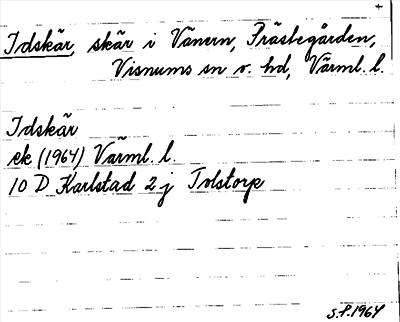 Idskär, skär i Vänern, Prästegården,
Visnums sn o. hd, Värml. l.
Idskär
ek (1964) Värml. l.
10 D Karlstad 2 j Tolstorp
S.P. 1964